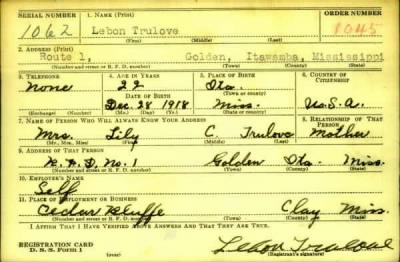 SERIAL NUMBER 1. NAME (Print) ORDER NUMBER
1062 Lebon Trulove 1045
(First) (Middle) (Last)
2. ADDRESS (Print)
Route 1, Golden, Itawamba, Mississippi
(Number and street or R. F. D. number) (Town) (County) (State)
3. TELEPHONE 4. AGE IN YEARS 5. PLACE OF BIRTH 6. COUNTRY OF CITIZENSHIP
None 22 Ita.
DATE OF BIRTH (Town or county)
Dec. 28 1918 Miss. U.S.A.
(Exchange) (Number) (Mo.) (Day) (Yr.) (State or country)
7. NAME OF PERSON WHO WILL ALWAYS KNOW YOUR ADDRESS 8. RELATIONSHIP OF THAT PERSON
Mrs. Lily C. Trulove Mother
(Mr., Mrs., Miss) (First) (Middle) (Last)
9. ADDRESS OF THAT PERSON
R.F.D. No. 1 Golden Ita. Miss.
(Number and street or R. F. D. number) (Town) (County) (State)
10. EMPLOYER'S NAME
Self
11. PLACE OF EMPLOYMENT OR BUSINESS
Cedar Bluffe Clay Miss.
(Number and street or R. F. D. number) (Town) (County) (State)
I AFFIRM THAT I HAVE VERIFIED ABOVE ANSWERS AND THAT THEY ARE TRUE.
REGISTRATION CARD
D. S. S. Form 1 Lebon Trulove
(Registrant's signature)